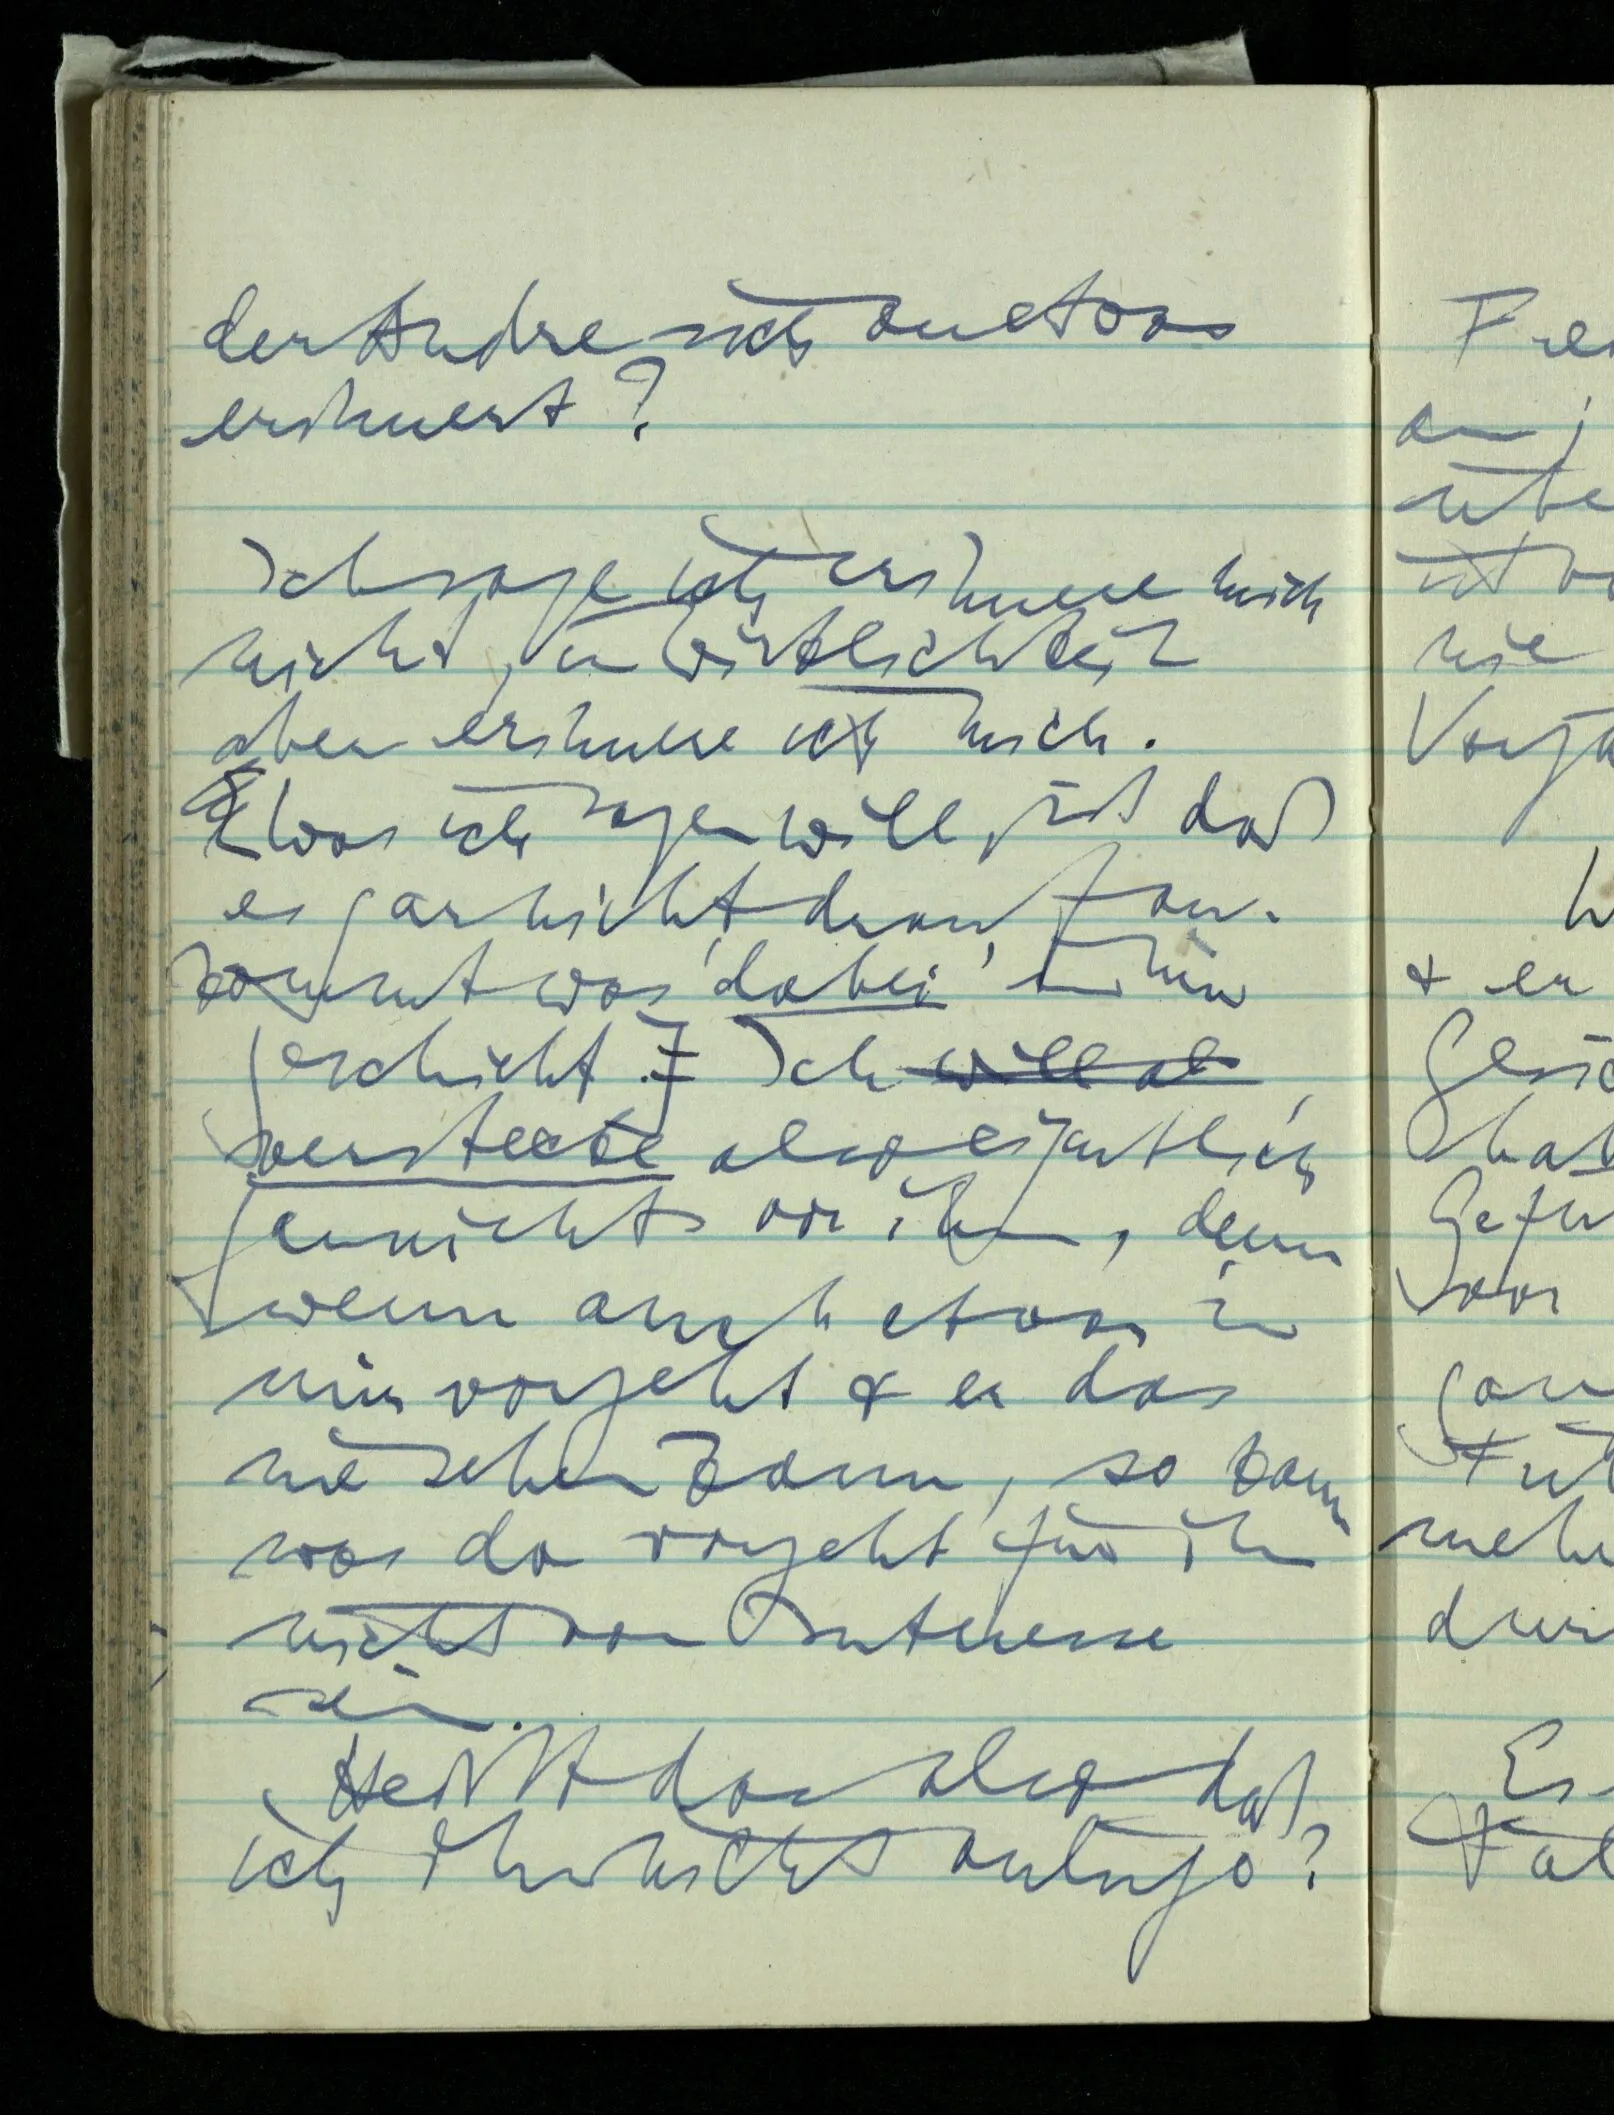 der Andre sich an etwas
erinnert?
Ich sage ich erinnere mich
nicht, in Wirklichkeit
aber erinnere ich mich.
[Was ich sagen will, ist daß
es garnicht drauf an-
kommt was 'dabei' in mir
geschieht.] Ich will al
verstecke also eigentlich
garnichts vor ihm, denn
wenn auch etwas in
mir vorgeht & er das
nie sehen kann, so kann
was da vorgeht für ihn
nicht von Interesse
sein.
Heißt das also daß
ich ihn nicht anlüge?
Vorg
& er